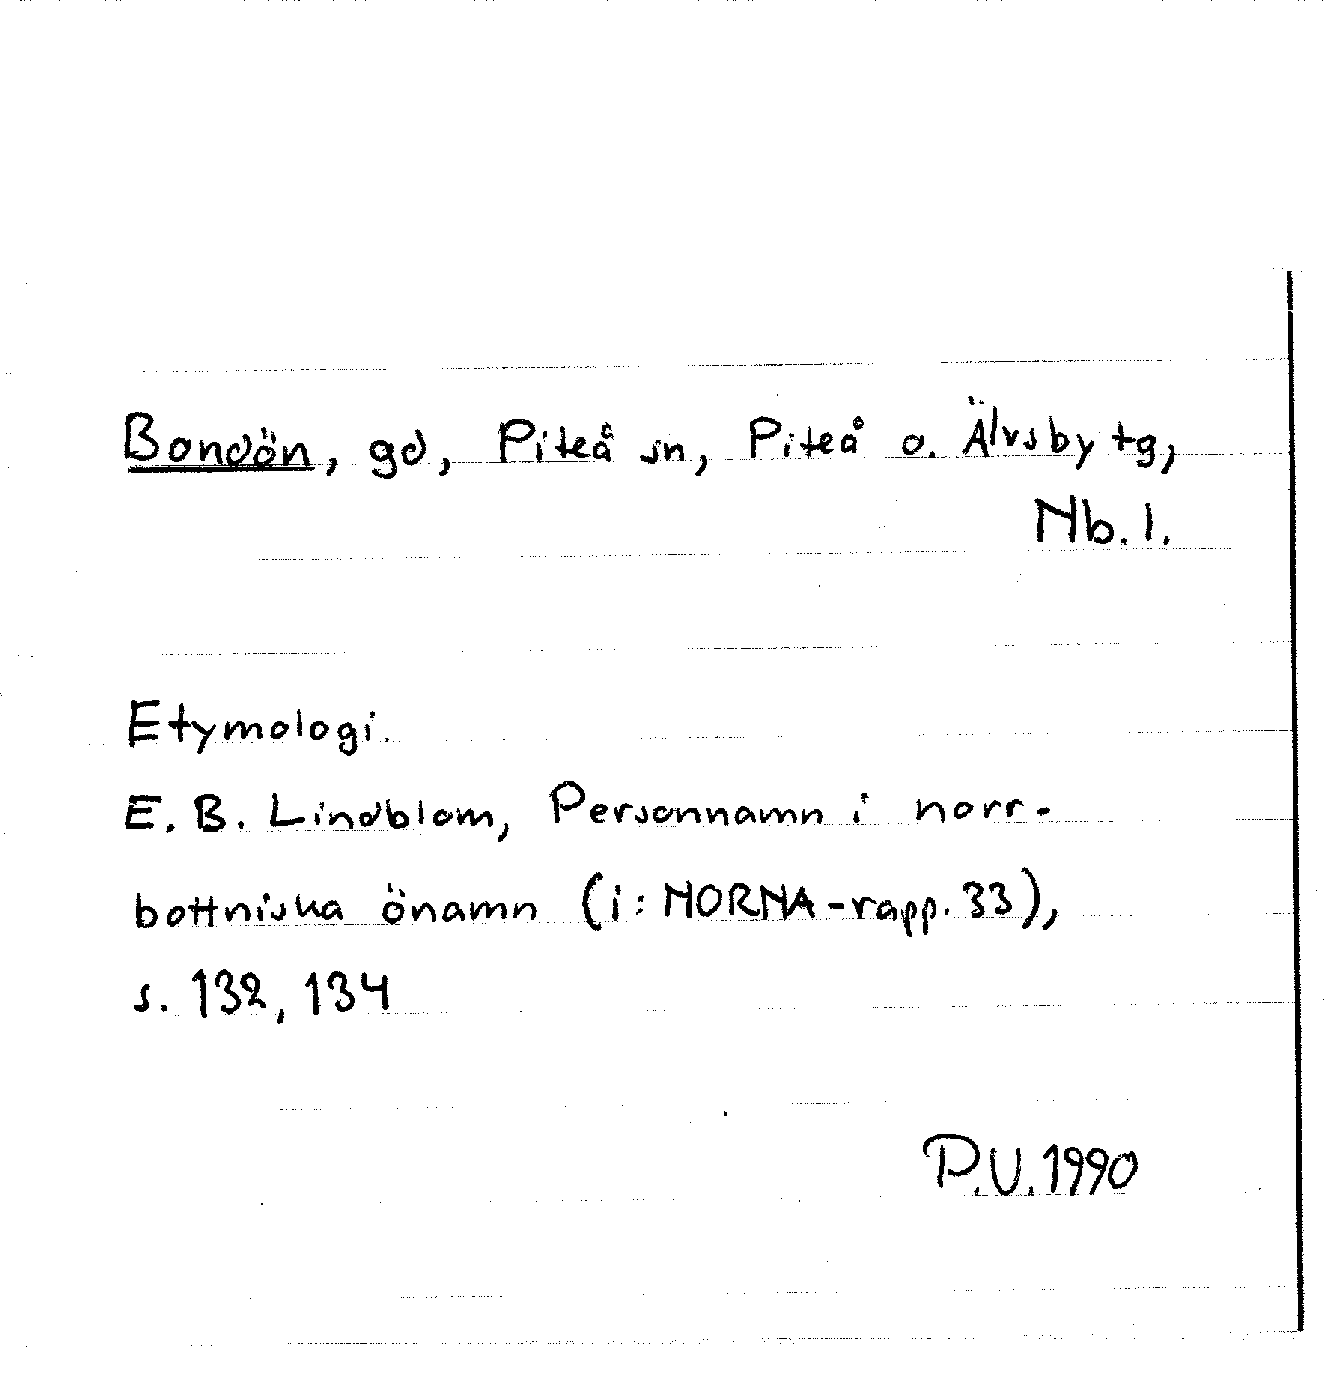 Bondön, gd, Piteå sn, Piteå o. Älvsby tg,
Nb. l.
Etymologi.
E. B. Lindblom, Personnamn i norr-
bottniska önamn (i: NORNA-rapp. 33),
s. 132, 134
P.U. 1990